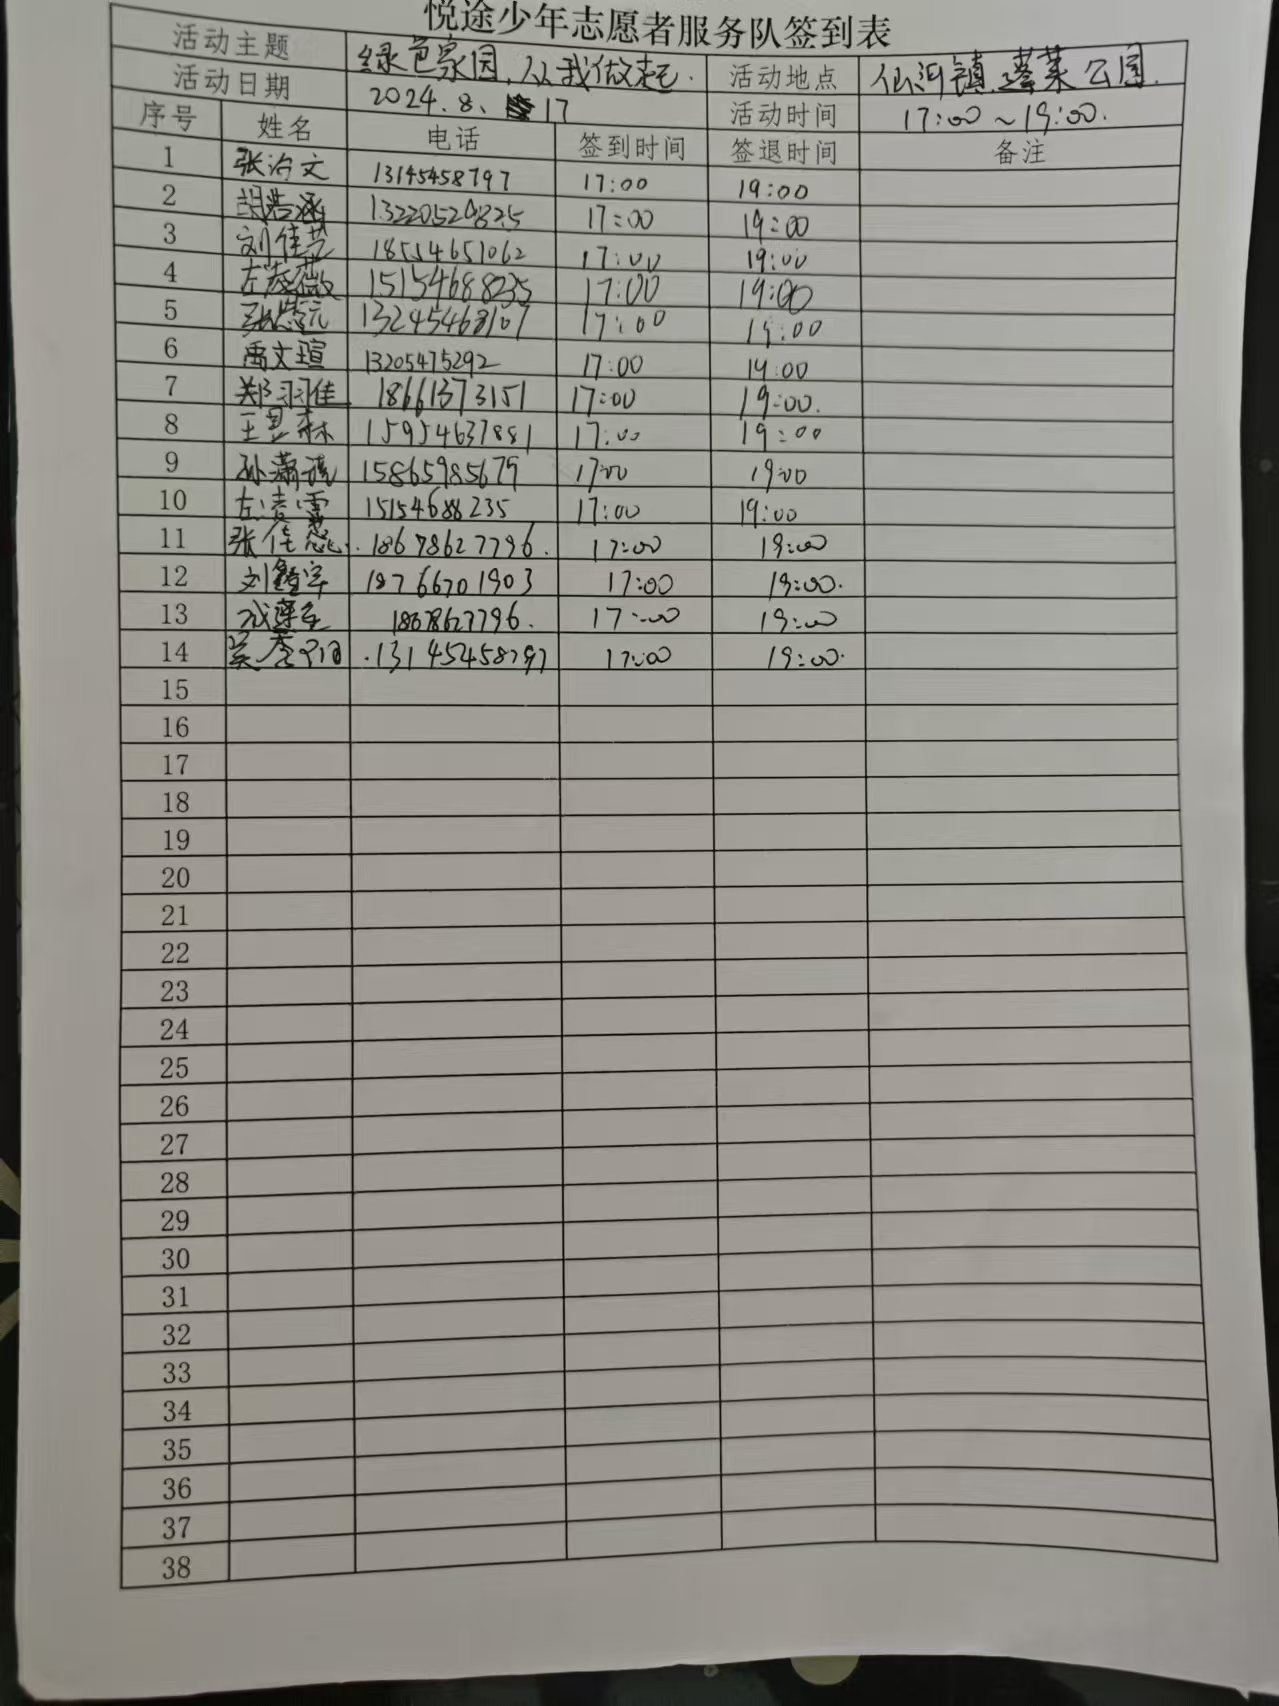 悦途少年志愿者服务队签到表
活动主题 绿色家园,从我做起. 活动地点 仙河镇.蓬莱公园.
活动日期 2024.8.17 活动时间 17:00~19:00.
序号 姓名 电话 签到时间 签退时间 备注
1 张治文 13145458797 17:00 19:00
2 胡浩涵 13220529825 17:00 19:00
3 刘佳艺 18554651062 17:00 19:00
4 左凌薇 15154688235 17:00 19:00
5 张 13245468107 17:00 19:00
6 禹文瑄 13205475292 17:00 19:00
7 郑羽佳 18661373151 17:00 19:00.
8 王昱森 15954637881 17:00 19:00
9 孙潇 15865985679 17:00 19:00
10 左凌雪 15154688235 17:00 19:00
11 张佳 18678627796. 17:00 19:00
12 刘鑫宇 18766701903 17:00 19:00.
13 18678627796. 17:00 19:00
14 吴 .13145458797 17:00 19:00.
15
16
17
18
19
20
21
22
23
24
25
26
27
28
29
30
31
32
33
34
35
36
37
38